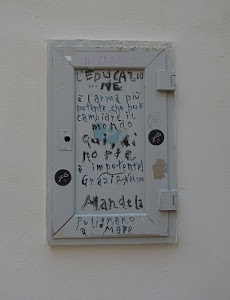 L'EDUCAZIO
NE
è l'arma più
potente che può
cambiare il
mondo
qui
no
è importante!
Grazie Nelson
Mandela
Polignano
a Mare